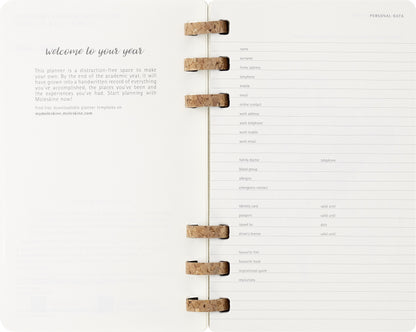 welcome to your year
This planner is a distraction-free space to make
your own. By the end of the academic year, it will
have grown into a handwritten record of everything
you've accomplished, the places you've been and
the experiences you've had. Start planning with
Moleskine now!
Find free downloadable planner templates on
mymoleskine.moleskine.com
PERSONAL DATA
name
surname
home address
telephone
mobile
email
online contact
work address
work telephone
work mobile
work email
family doctor telephone
blood group
allergies
emergency contact
identity card valid until
passport valid until
issued by date
driver's licence valid until
favourite film
favourite book
inspirational quote
important